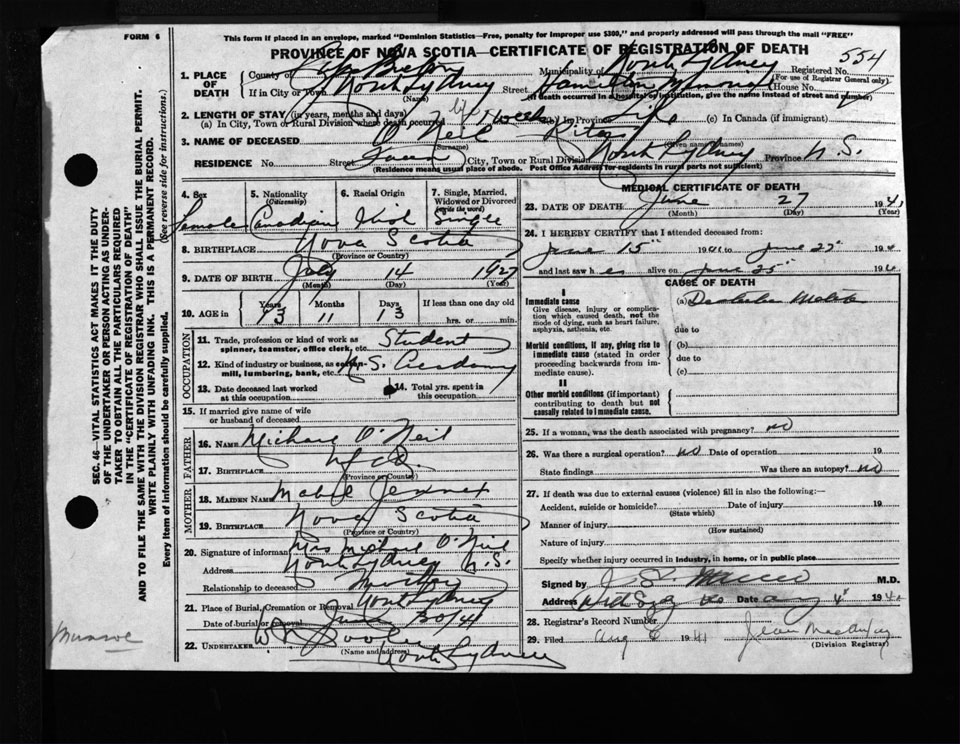 FORM 6
This form if placed in an envelope, marked "Dominion Statistics—Free, penalty for improper use $300," and properly addressed will pass through the mail "FREE"
PROVINCE OF NOVA SCOTIA—CERTIFICATE OF REGISTRATION OF DEATH
Registered No. 554
(For use of Registrar General only)
1. PLACE OF DEATH
County of Cape Breton Municipality of North Sydney
If in City or Town North Sydney Street House No.
(Name) (If death occurred in a hospital or institution, give the name instead of street and number)
2. LENGTH OF STAY (in years, months and days)
(a) In City, Town or Rural Division where death occurred (b) In Province Life (c) In Canada (if immigrant)
3. NAME OF DECEASED O'Neil Rita
(Surname) (Given name or names)
RESIDENCE No. Street City, Town or Rural Division North Sydney Province N.S.
(Residence means usual place of abode. Post Office Address for residents in rural parts not sufficient)
4. Sex 5. Nationality (Citizenship) 6. Racial Origin 7. Single, Married, Widowed or Divorced (write the word)
Female Canadian Irish Single
8. BIRTHPLACE Nova Scotia
(Province or Country)
9. DATE OF BIRTH July 14 1927
(Month) (Day) (Year)
10. AGE in Years Months Days If less than one day old
13 11 13 hrs. or min.
OCCUPATION
11. Trade, profession or kind of work as spinner, teamster, office clerk, etc. Student
12. Kind of industry or business, as cotton-mill, lumbering, bank, etc. N.S. Academy
13. Date deceased last worked at this occupation 14. Total yrs. spent in this occupation
15. If married give name of wife or husband of deceased
FATHER
16. NAME Michael O'Neil
17. BIRTHPLACE Nfld.
(Province or Country)
MOTHER
18. MAIDEN NAME Mabel
19. BIRTHPLACE Nova Scotia
(Province or Country)
20. Signature of informant Mrs Michael O'Neil
Address North Sydney N.S.
Relationship to deceased Mother
21. Place of Burial, Cremation or Removal North Sydney
Date of burial or removal June 30/41
22. UNDERTAKER
(Name and address) North Sydney
MEDICAL CERTIFICATE OF DEATH
23. DATE OF DEATH June 27 1941
(Month) (Day) (Year)
24. I HEREBY CERTIFY that I attended deceased from
June 15" 1941 to June 25" 194
and last saw her alive on June 25" 194
CAUSE OF DEATH
I
Immediate cause
Give disease, injury or complication which caused death, not the mode of dying, such as heart failure, asphyxia, asthenia, etc.
(a)
due to
Morbid conditions, if any, giving rise to immediate cause (stated in order proceeding backwards from immediate cause).
(b)
due to
(c)
II
Other morbid conditions (if important) contributing to death but not causally related to immediate cause.
25. If a woman, was the death associated with pregnancy? no
26. Was there a surgical operation? no Date of operation 19
State findings Was there an autopsy? no
27. If death was due to external causes (violence) fill in also the following:—
Accident, suicide or homicide? Date of injury 19
(State which)
Manner of injury
(How sustained)
Nature of injury
Specify whether injury occurred in industry, in home, or in public place
Signed by M.D.
Address Date 4" 194
28. Registrar's Record Number
29. Filed Aug 6 1941 Jean
(Division Registrar)
SEC. 46—VITAL STATISTICS ACT MAKES IT THE DUTY
OF THE UNDERTAKER OR PERSON ACTING AS UNDER-
TAKER TO OBTAIN ALL THE PARTICULARS REQUIRED
IN THE "CERTIFICATE OF REGISTRATION OF DEATH"
AND TO FILE THE SAME WITH THE DIVISION REGISTRAR WHO SHALL ISSUE THE BURIAL PERMIT.
WRITE PLAINLY WITH UNFADING INK. THIS IS A PERMANENT RECORD.
Every item of information should be carefully supplied. (See reverse side for instructions.)
Munroe